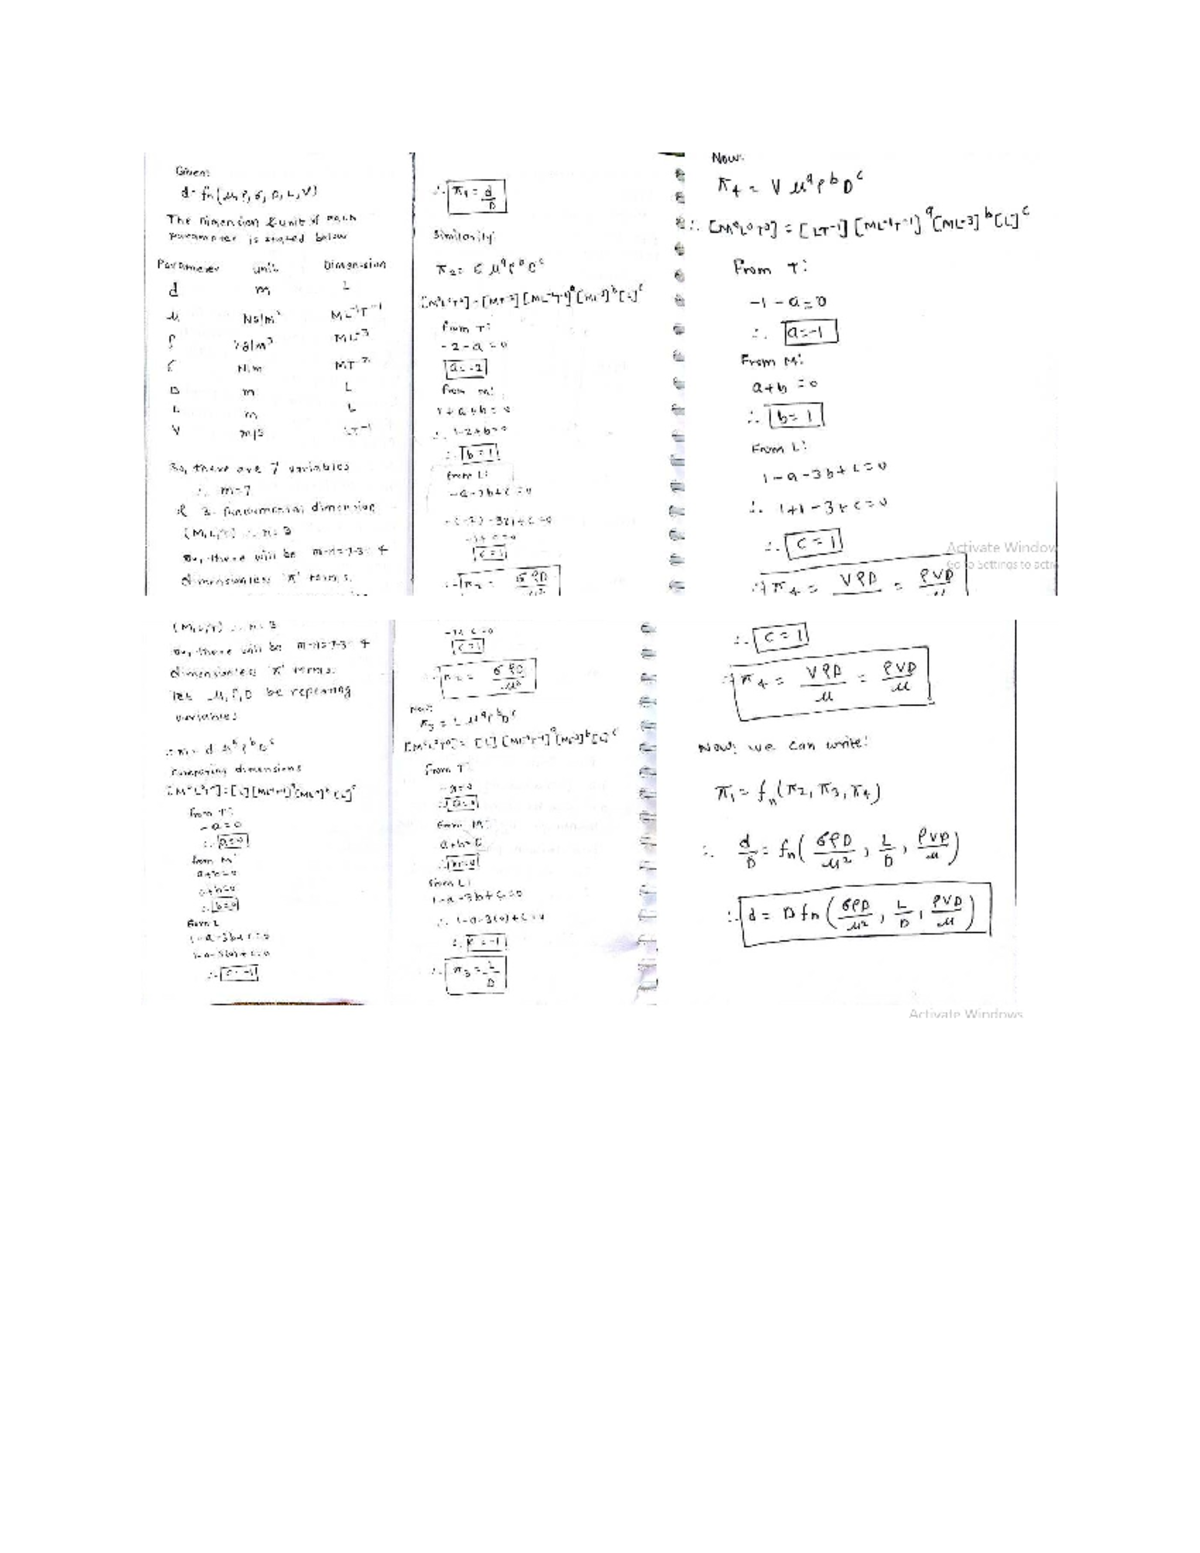 Given:
d = fn(μ, ρ, σ, D, L, V)
The Dimension & unit of each
parameter is stated below
Parameter unit Dimension
d m L
μ Ns/m² ML⁻¹T⁻¹
ρ kg/m³ ML⁻³
σ N/m MT⁻²
D m L
L m L
V m/s LT⁻¹
So, there are 7 variables
∴ m=7
& 3 fundamental dimension
(M,L,T) ∴ n=3
So, there will be m-n=7-3=4
dimensionless 'π' terms.
∴ π₁ = d/D
Similarly:
π₂ = σ μᵃρᵇDᶜ
[M⁰L⁰T⁰] = [MT⁻²] [ML⁻¹T⁻¹]ᵃ [ML⁻³]ᵇ [L]ᶜ
From T:
-2-a=0
a=-2
From M:
1+a+b=0
∴ 1-2+b=0
∴ b=1
From L:
-a-3b+c=0
-(-2)-3(1)+c=0
-1+c=0
c=1
∴ π₂ = σρD/μ²
Now:
π₄ = V μᵃρᵇDᶜ
∴ [M⁰L⁰T⁰] = [LT⁻¹] [ML⁻¹T⁻¹]ᵃ [ML-3]ᵇ [L]ᶜ
From T:
-1-a=0
∴ a=-1
From M:
a+b=0
∴ b=1
From L:
1-a-3b+c=0
∴ 1+1-3+c=0
∴ c=1
Activate Window
Go to Settings to acti
∴ π₄ = VρD = ρVD/μ
(M,L,T) ∴ n=3
So, there will be m-n=7-3=4
dimensionless 'π' terms.
Let μ,ρ,D be repeating
variables
∴ π₁ = d μᵃρᵇDᶜ
Comparing dimensions
[M⁰L⁰T⁰] = [L] [ML⁻¹T⁻¹]ᵃ [ML⁻³]ᵇ [L]ᶜ
From T:
-a=0
∴ a=0
From M
a+b=0
a+b=0
∴ b=0
From L
1-a-3b+c=0
1-0-3(0)+c=0
∴ c=-1
-1+c=0
c=1
π₂ = σρD/μ²
Now:
π₃ = L μᵃρᵇDᶜ
[M⁰L⁰T⁰] = [L] [ML⁻¹T⁻¹]ᵃ [ML⁻³]ᵇ [L]ᶜ
From T:
-a=0
∴ a=0
From M:
a+b=0
∴ b=0
From L:
1-a-3b+c=0
∴ 1-a-3(0)+c=0
∴ c=-1
∴ π₃ = L/D
∴ c=1
∴ π₄ = VρD/μ = ρVD/μ
Now, we can write:
π₁ = fn(π₂, π₃, π₄)
∴ d/D = fn(σρD/μ², L/D, ρVD/μ)
∴ d = D fn(σρD/μ², L/D, ρVD/μ)
Activate Windows